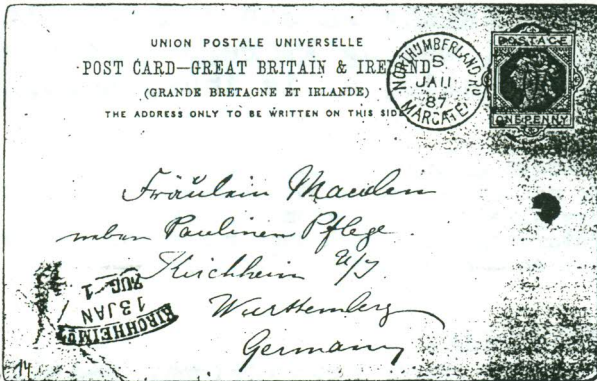 UNION POSTALE UNIVERSELLE
POST CARD—GREAT BRITAIN & IRELAND
(GRANDE BRETAGNE ET IRLANDE)
THE ADDRESS ONLY TO BE WRITTEN ON THIS SIDE
NORTHUMBERLAND RD
5
JA 11
87
MARGATE
POSTAGE
ONE PENNY
Fräulein
neben Paulinen Pflege
Kirchheim u/T
Württemberg
Germany
KIRCHHEIM
13 JAN
ZUG 1
14